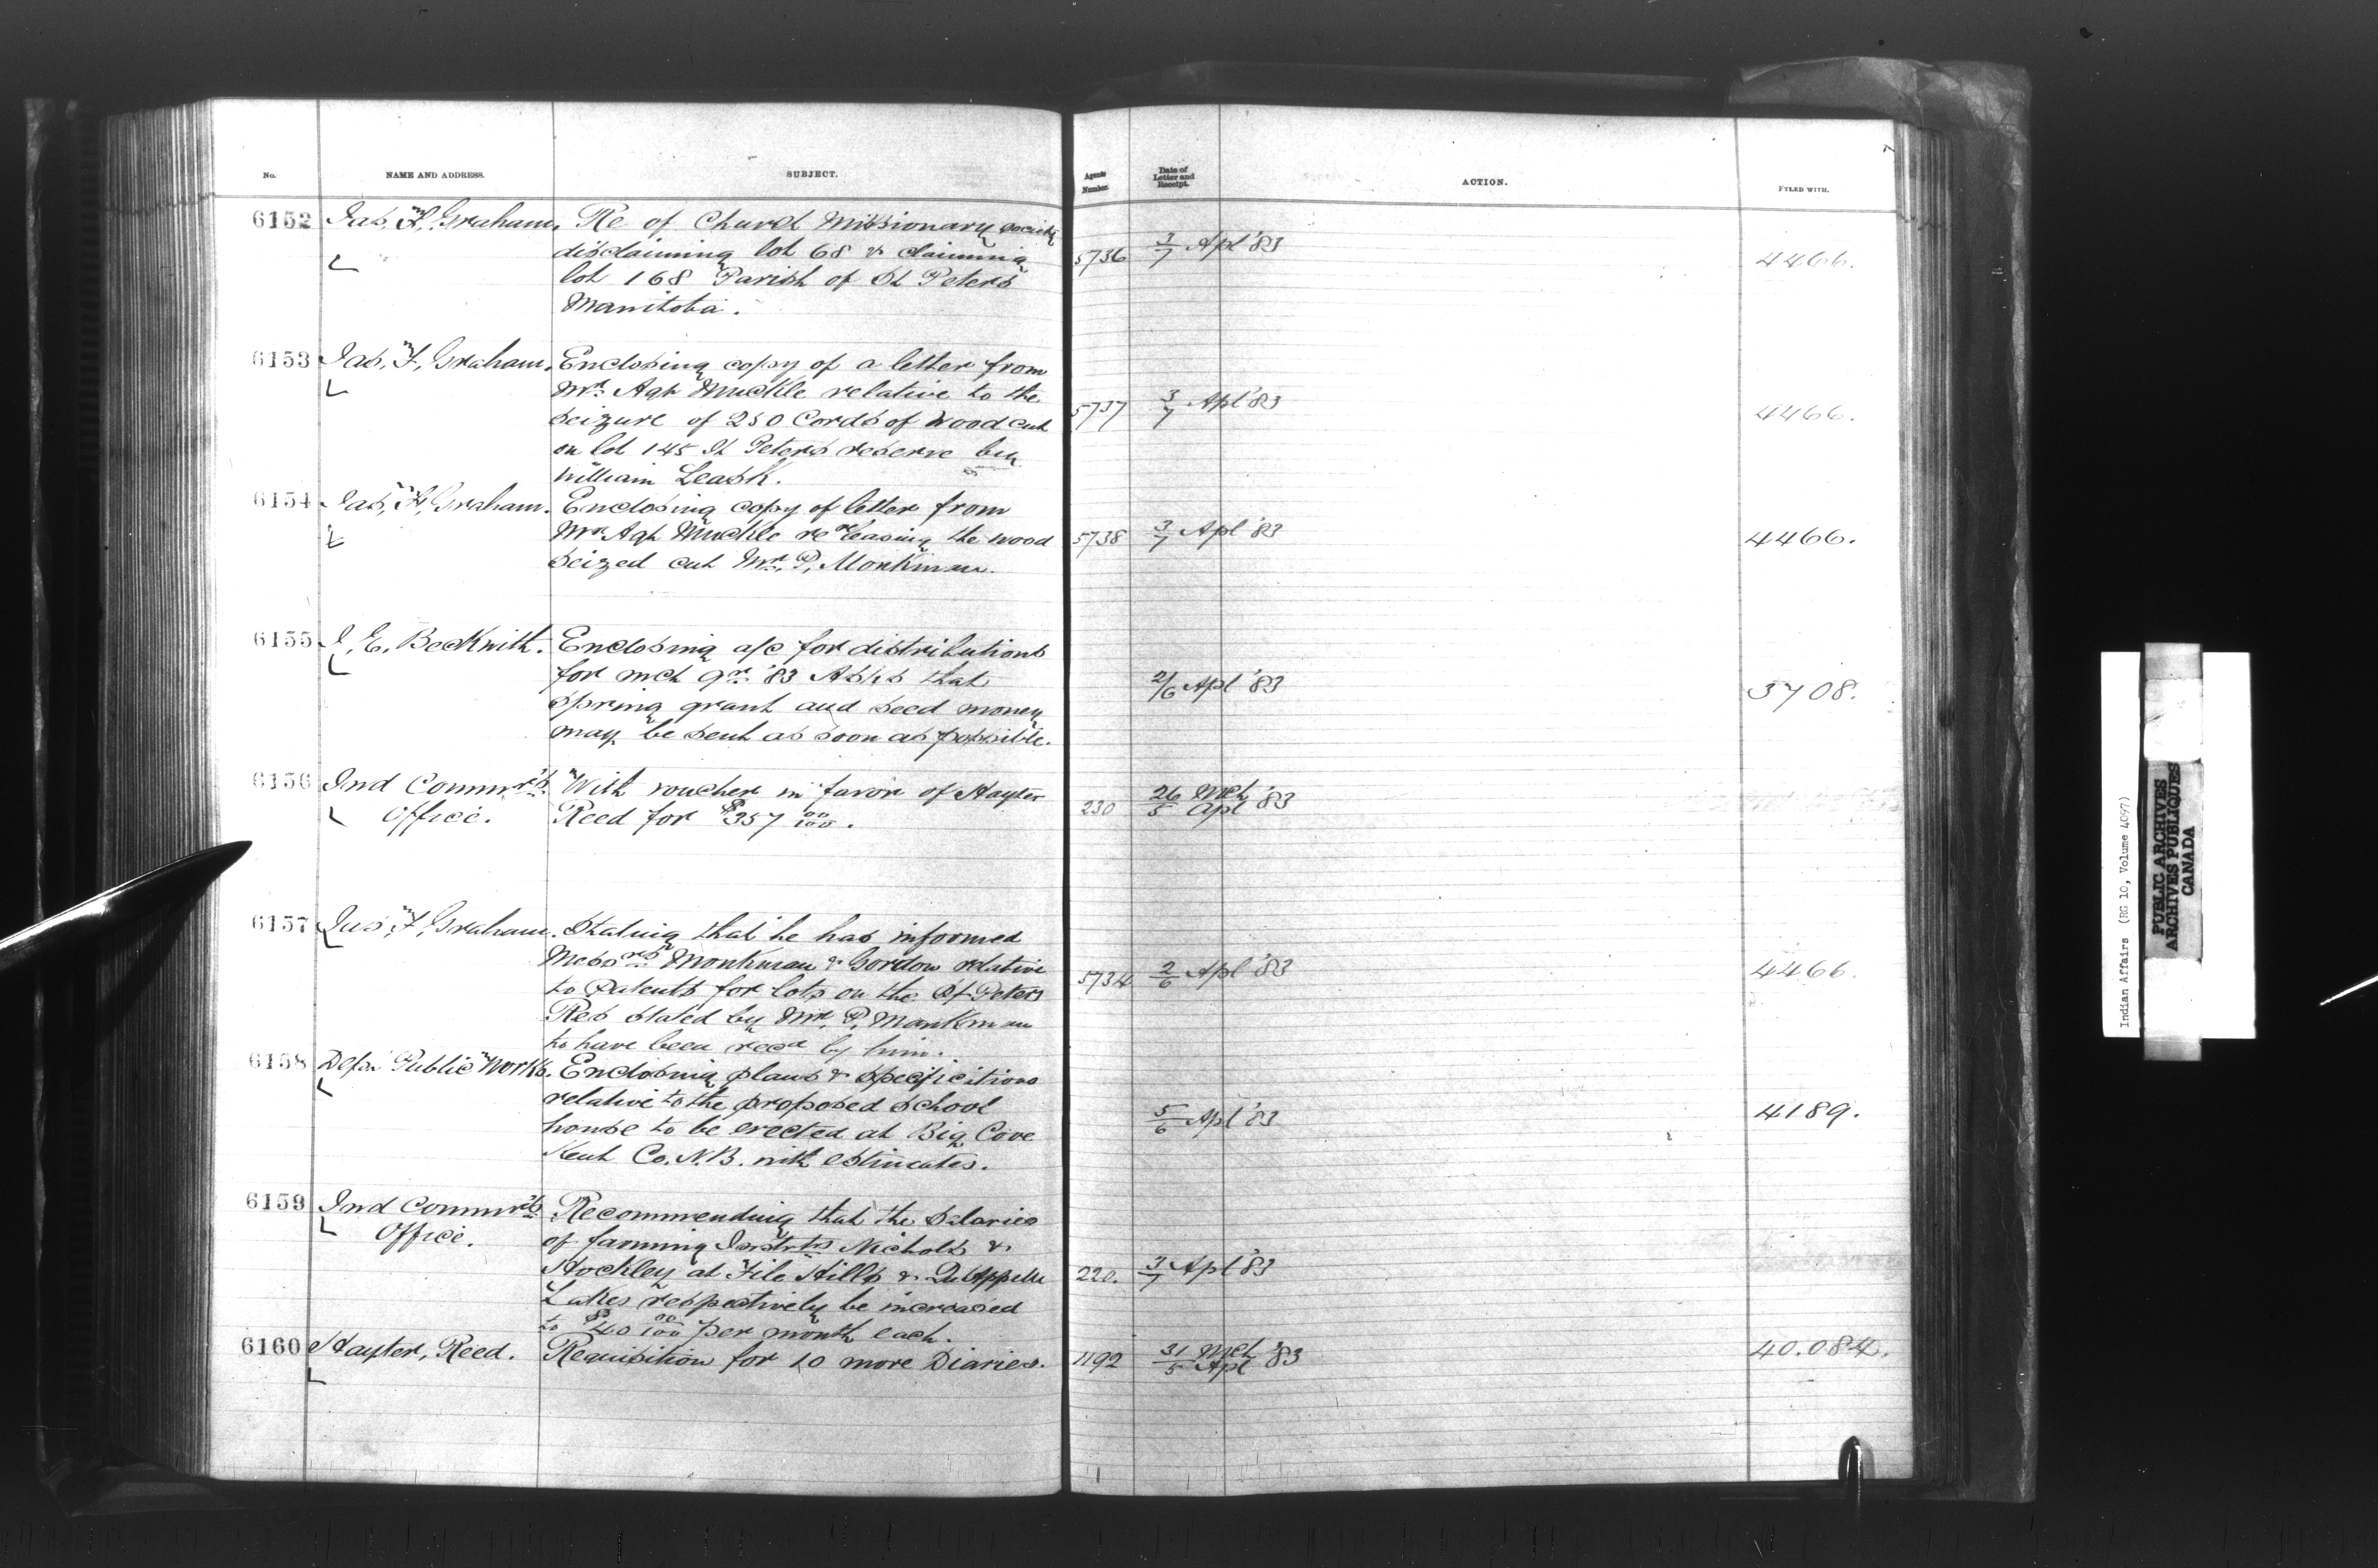 No. NAME AND ADDRESS. SUBJECT. Agents Number. Date of Letter and Receipt. ACTION. FYLED WITH.
6152 Jas, F, Graham. Re of Church Missionary society
disclaiming lot 68 & claiming 5736 3/7 Apl '83 4466.
lot 168 Parish of St Peters
Manitoba.
6153 Jas, F, Graham. Enclosing copy of a letter from
Mr. Agt Muckle relative to the 5737 3/7 Apl '83 4466.
seizure of 250 Cords of wood cut
on lot 145 St Peters reserve by
William Leask.
6154 Jas, F, Graham. Enclosing copy of letter from
Mr Agt Muckle re releasing the wood 5738 3/7 Apl '83 4466.
seized cut Mr. P, Monkman.
6155 J. E. Beckwith. Enclosing a/c for distributions
for Mch qr. '83 Asks that 2/6 Apl '83 3708.
spring grant and seed money
may be sent as soon as possible.
6156 Ind Commrs. With voucher in favor of Hayter
Office. Reed for $357 00/100. 230 26 Mch/5 Apl '83
6157 Jas, F, Graham. Stating that he has informed
Messrs Monkman & Gordon relative 5734 2/6 Apl '83 4466.
to Patents for lots on the St Peters
Res stated by Mr. P, Monkman
to have been recd by him.
6158 Dept Public Works. Enclosing plans & specifications
relative to the proposed school 5/6 Apl '83 4189.
house to be erected at Big Cove
Kent Co. N.B. with estimates.
6159 Ind Commrs Recommending that the Salaries
Office. of farming Instrtrs Nichols &
Hockley at File Hills & Qu'Appelle 220. 3/7 Apl '83
Lakes respectively be increased
to $40 00/100 per month each.
6160 Hayter, Reed. Requisition for 10 more Diaries. 1192 31 Mch/5 Apl '83 40.084.
Indian Affairs (RG 10, Volume 4097)
PUBLIC ARCHIVES
ARCHIVES PUBLIQUES
CANADA